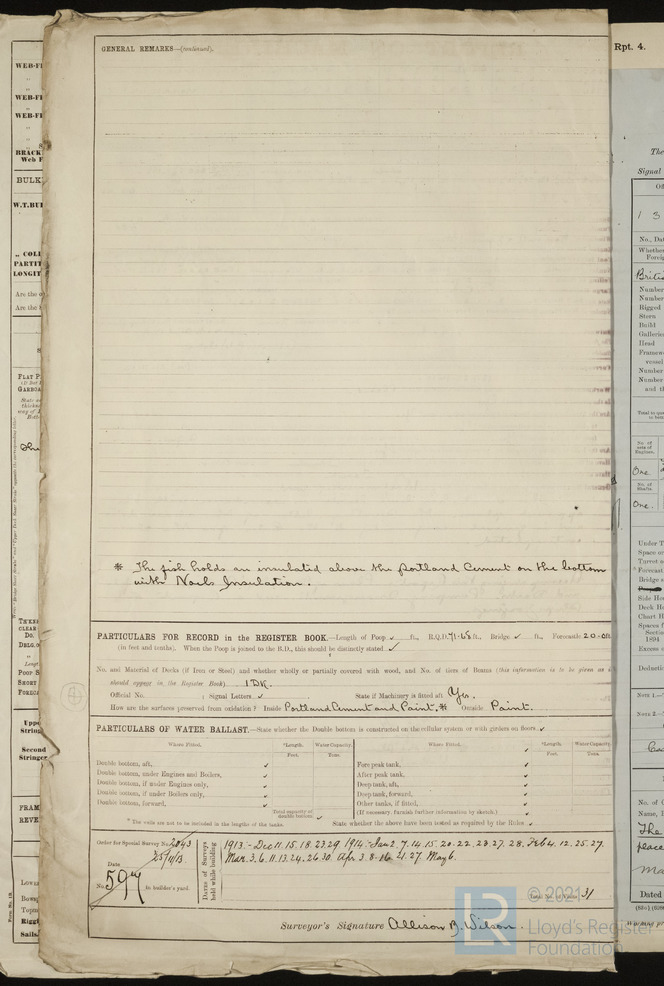 GENERAL REMARKS—(continued).
* The fish holds are insulated above the Portland Cement on the bottom
with Noels Insulation.
PARTICULARS FOR RECORD in the REGISTER BOOK.—Length of Poop ✓ ft., R.Q.D. 71·65 ft., Bridge ✓ ft., Forecastle 20·
(in feet and tenths). When the Poop is joined to the B.D., this should be distinctly stated ✓
No. and Material of Decks (if Iron or Steel) and whether wholly or partially covered with wood, and No. of tiers of Beams (this information is to be given as it
should appear in the Register Book) 1 Dk.
Official No. ; Signal Letters ✓ State if Machinery is fitted aft Yes.
How are the surfaces preserved from oxidation? Inside Portland Cement and Paint.* Outside Paint.
PARTICULARS OF WATER BALLAST.—State whether the Double bottom is constructed on the cellular system or with girders on floors ✓
Where Fitted. *Length. Water Capacity. Where Fitted. *Length. Water Capacity.
Feet. Tons. Feet. Tons.
Double bottom, aft, ✓ Fore peak tank, ✓
Double bottom, under Engines and Boilers, ✓ After peak tank, ✓
Double bottom, if under Engines only, ✓ Deep tank, aft, ✓
Double bottom, if under Boilers only, ✓ Deep tank, forward, ✓
Double bottom, forward, ✓ Other tanks, if fitted, ✓
Total capacity of double bottom ✓ (If necessary, furnish further information by sketch.) ✓
* The wells are not to be included in the lengths of the tanks. State whether the above have been tested as required by the Rules ✓
Order for Special Survey No. 2043
Date 25/11/13
No. 597 in builder's yard.
DATES of Surveys held while building
1913:- Dec 11. 15. 18. 23. 29. 1914:- Jan 2. 7. 14. 15. 20. 22. 23. 27. 28. Feb 4. 12. 25. 27.
Mar. 3. 6. 11. 13. 24. 26. 30. Apr 3. 8. 16. 21. 27. May 6.
Total No. of Visits 31
Surveyor's Signature Allison B. Wilson.
© 2021
LR
Lloyd's Register
Foundation
Rpt. 4.